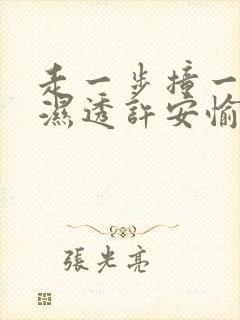 走一步撞一
濕透許安愉
張光亮